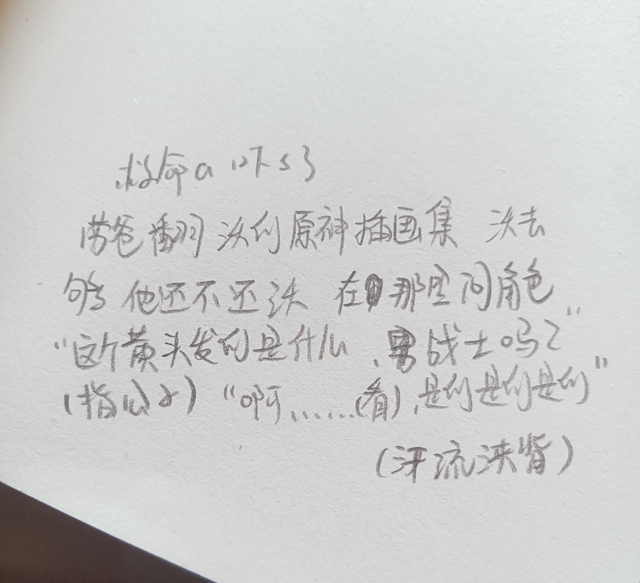 救命a 吓s了
劳爸翻 沃的原神插画集 沃去
够 他还不还沃 在那里问角色
“这个黄头发的是什么,男战士吗？”
(指公子)“啊……(看),是的是的是的”
(汗流浃背)